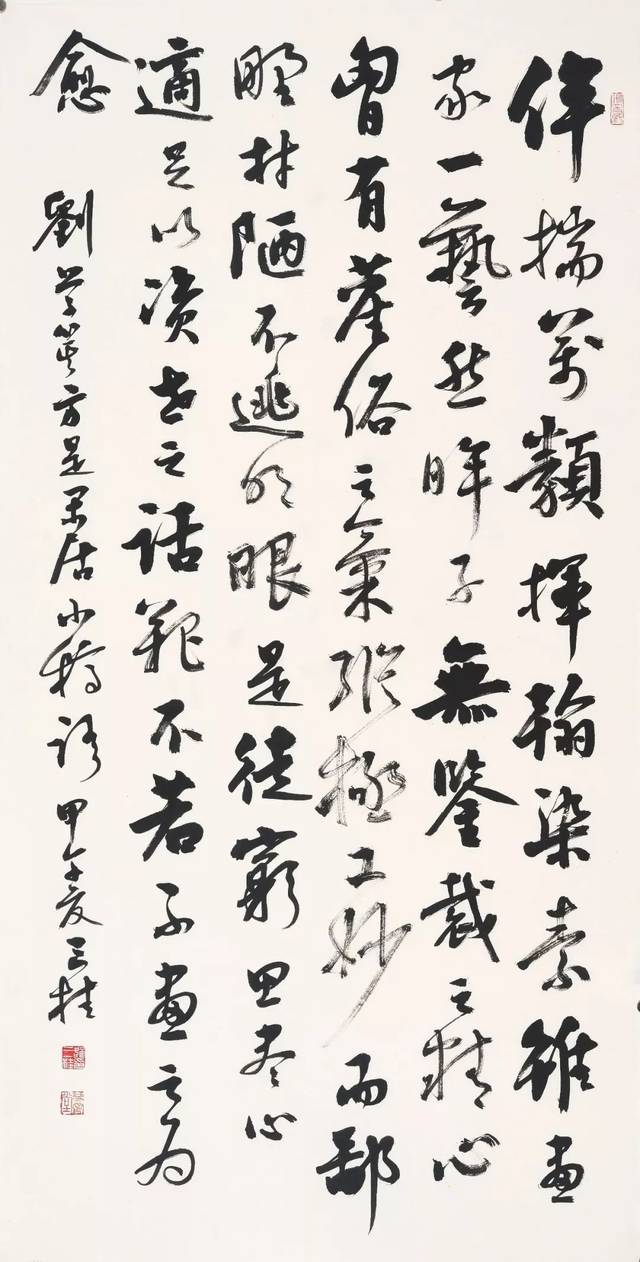 侔揣萬類揮翰染素雖畫
家一藝然眸子無鑒裁之精心
胷有塵俗之氣縱極工妙而鄙
野村陋不逃明眼是徒窮思尽心
適足以资世之話靶不若不畫之为
愈
劉學箕方是閑居小稿語 甲午夏三桂